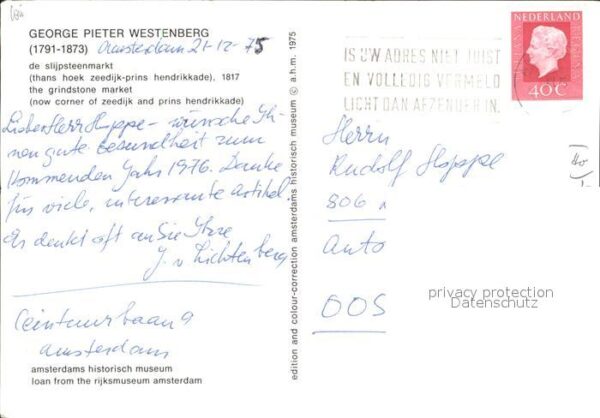 GEORGE PIETER WESTENBERG
(1791-1873) Amsterdam 21-12-75
de slijpsteenmarkt
(thans hoek zeedijk-prins hendrikkade), 1817
the grindstone market
(now corner of zeedijk and prins hendrikkade)
Lieber Herr Hoppe – wünsche Ih-
nen gute Gesundheit zum
kommenden Jahr 1976. Danke
für viele, interessante Artikel!
Es denkt oft an Sie Ihre
J. v. Lichtenberg
Ceintuurbaan 9
Amsterdam
amsterdams historisch museum
loan from the rijksmuseum amsterdam
edition and colour-correction amsterdams historisch museum © a.h.m. 1975
IS UW ADRES NIET JUIST
EN VOLLEDIG VERMELD
LICHT DAN AFZENDER IN.
NEDERLAND
40 C
Herrn
Rudolf Hoppe
806
Auto
OOS
privacy protection
Datenschutz